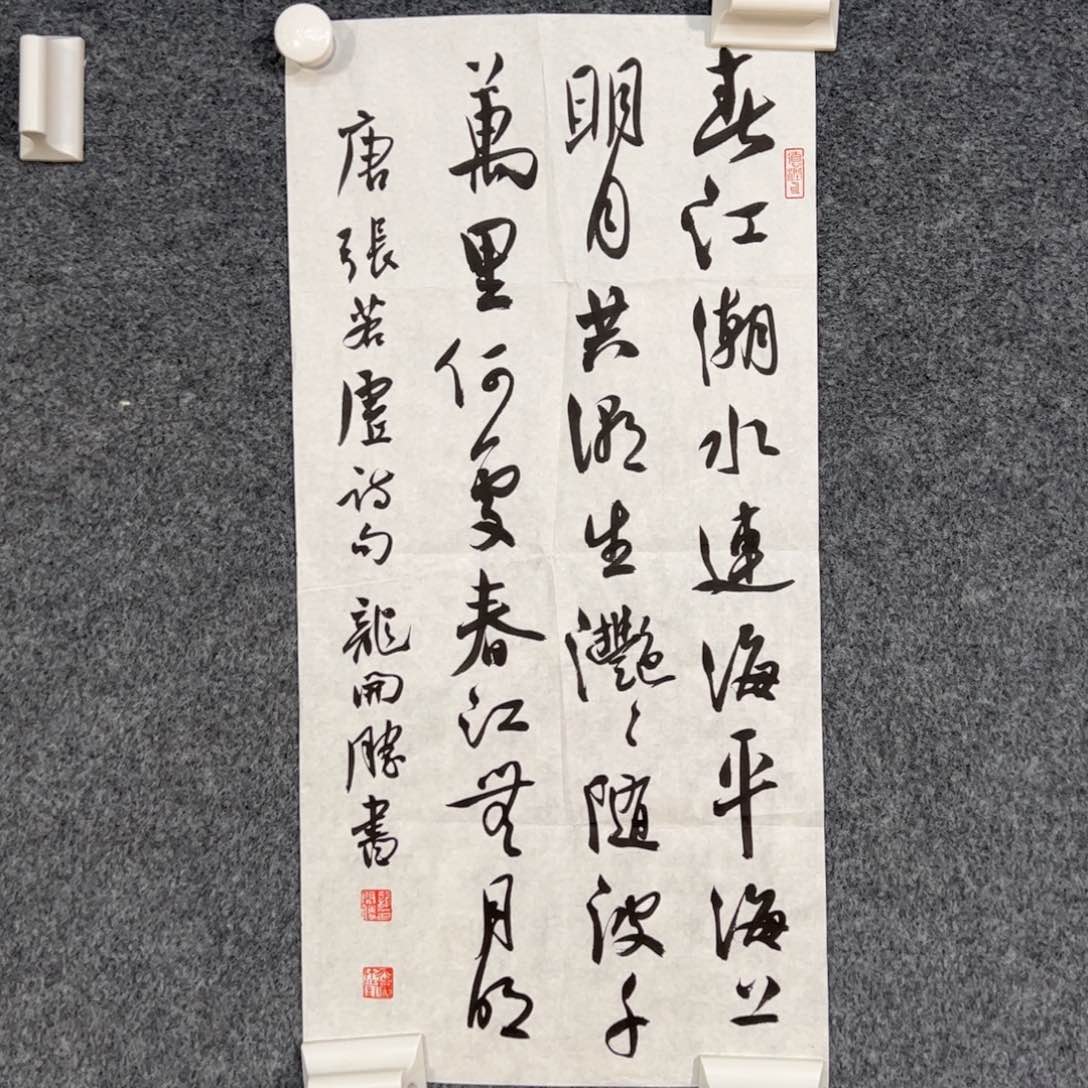 春江潮水連海平海上
明月共潮生灔〻随波千
萬里何處春江無月明
唐張若虛詩句 龍開勝書